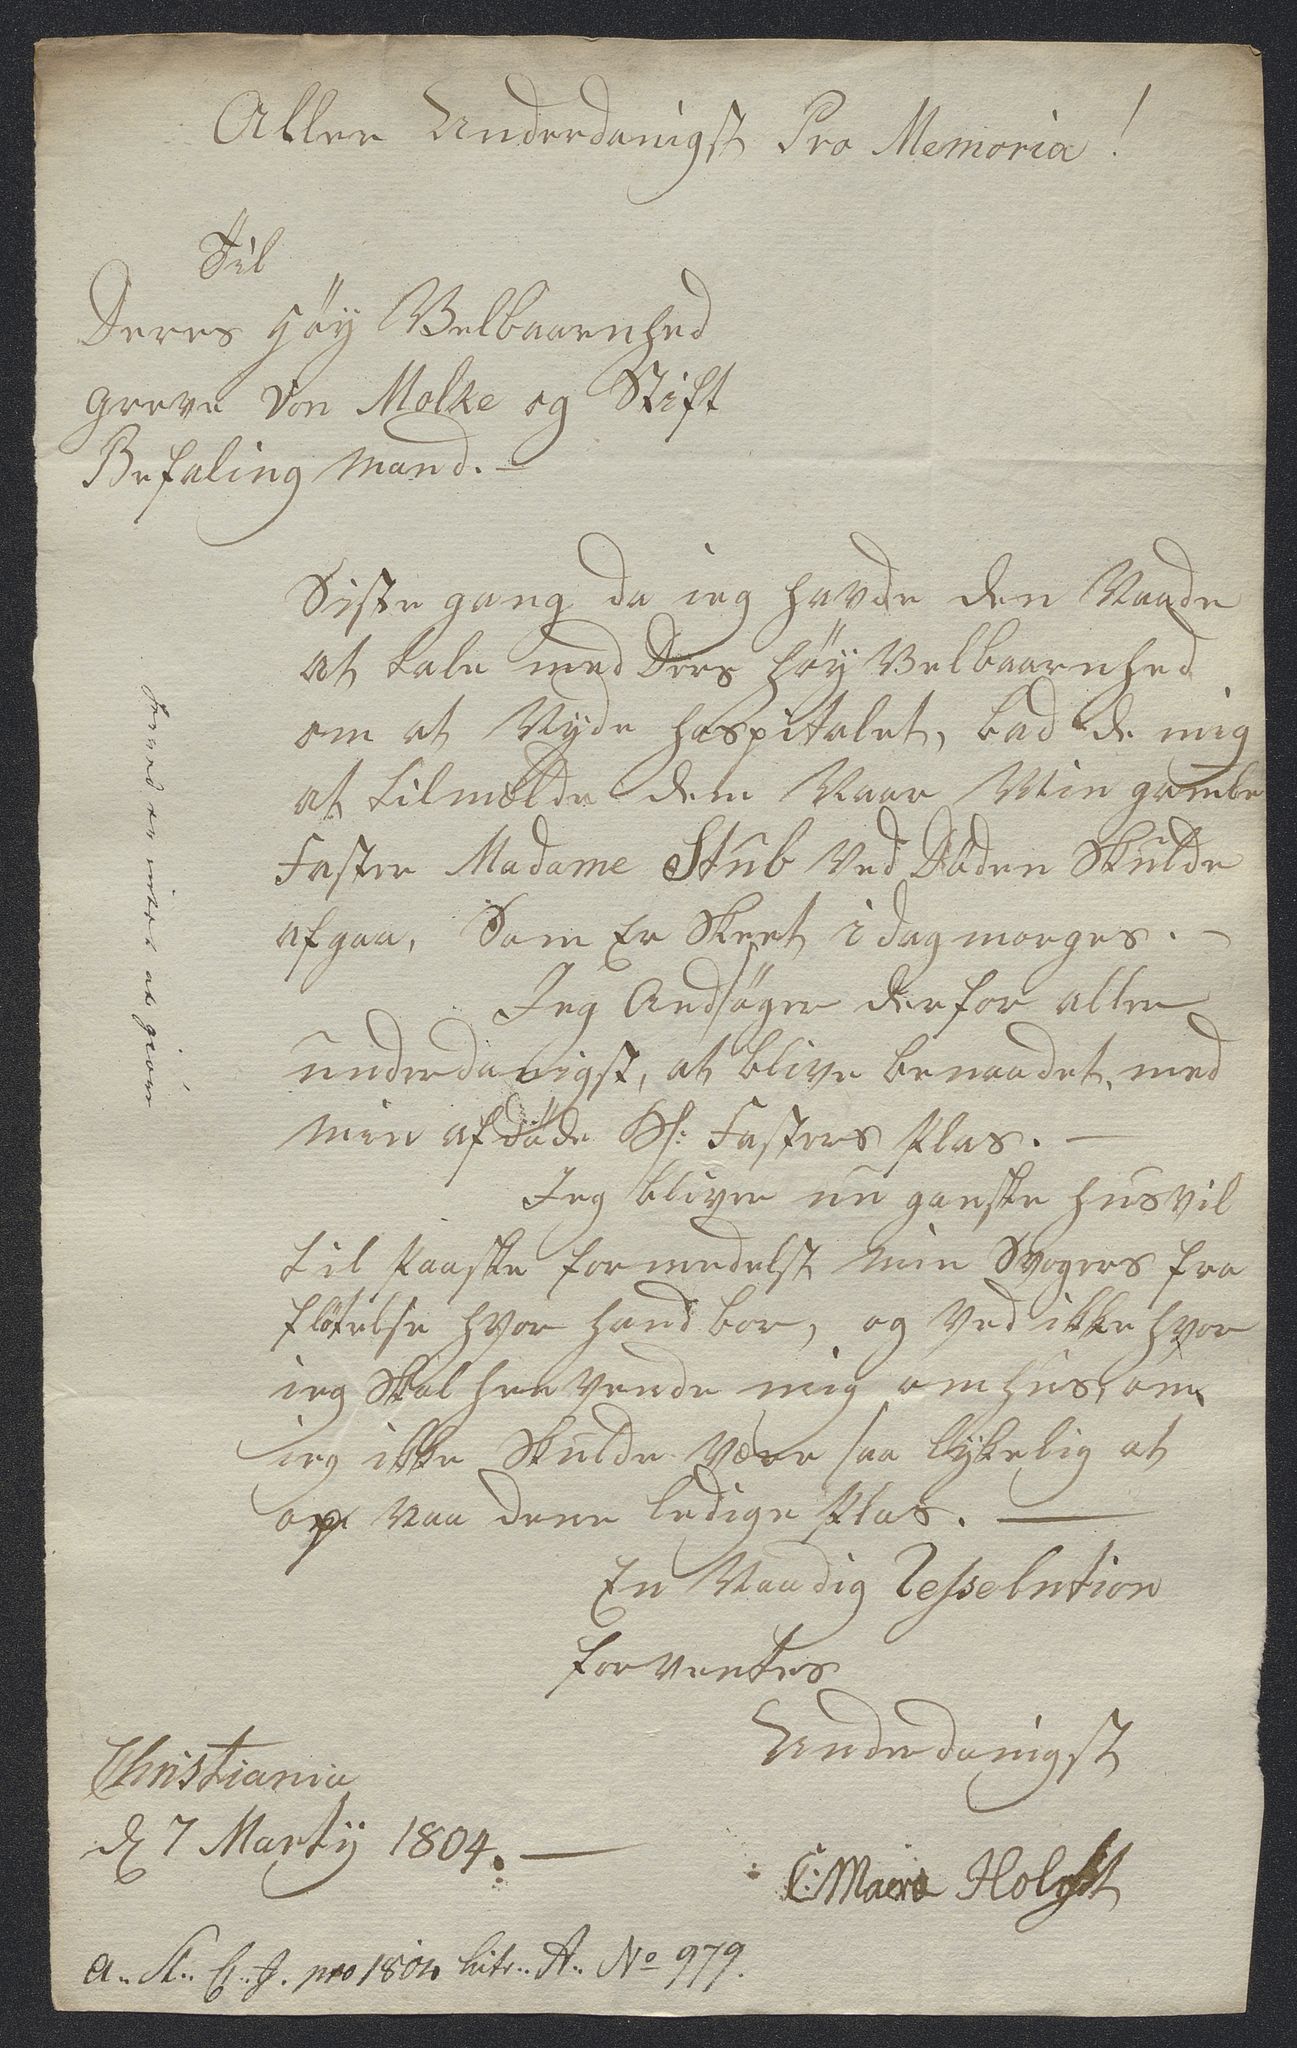 Aller Underdanigst Pro Memoria!
Til
Deres Höy Velbaarenhed
Greve von Molke og Stift
Befaling Mand. —
Siste gang da ieg havde den Naade
at tale med Ders Höy Velbaarenhed
om at Nyde Hospitalet, bad de mig
at tilmælde dem Naar Min gamle
Faster Madame Stub ved Döden Skulde
afgaa, Som Er Skeet i dag morges. —
Jeg Andsöger derfor aller
underdanigst, at blive benaadet med
min afdöde Sl: Fasters Plas. —
Jeg bliver nu ganske husvil
til Paaske formedelst min Svogers fra
fløtelse hvor hand bor, og ved ikke hvor
ieg Skal henvende mig om hus, om
ieg ikke Skulde være saa lykelig at
op naa dene ledige Plas. —
En Naadig Resselution
forventes
Underdanigst
Christiania
d 7 Martij 1804. —
C: Maira Holst
A.. K.. C.. J. pro 1804 Litr.. A.. No 979.
herved er intet at giöre